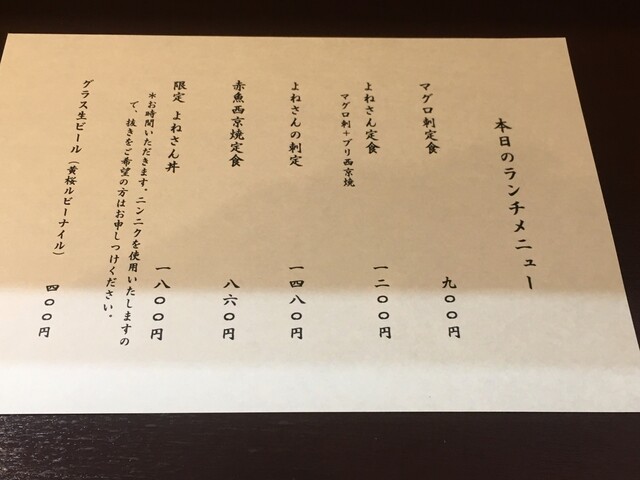 本日のランチメニュー
マグロ刺定食 九〇〇円
よねさん定食 一二〇〇円
マグロ刺+ブリ西京焼
よねさんの刺定 一四八〇円
赤魚西京焼定食 八六〇円
限定 よねさん丼 一八〇〇円
*お時間いただきます。ニンニクを使用いたしますの
で、抜きをご希望の方はお申しつけください。
グラス生ビール(黄桜ルビーナイル) 四〇〇円